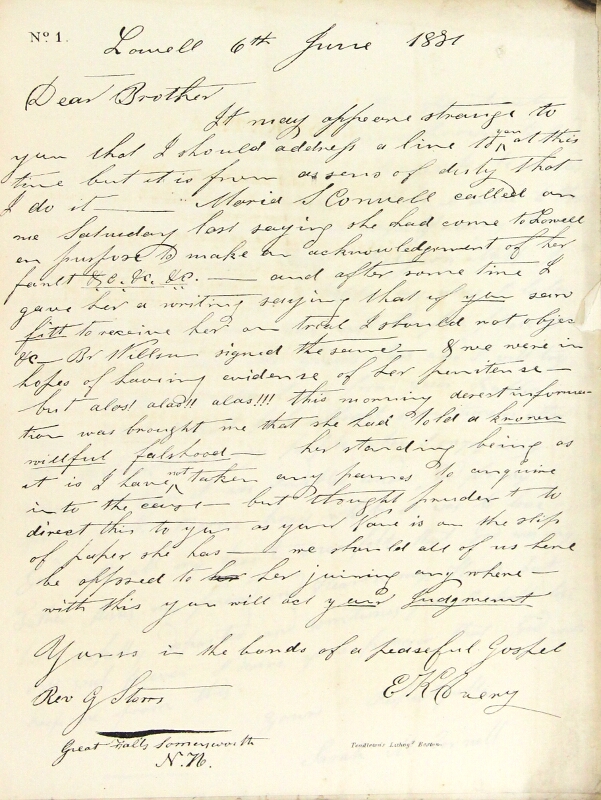 No. 1.
Lowell 6th June 1831
Dear Brother
It may appeare strange to
you that I should address a line to you at this
time but it is from a sens of duty that
I do it — Maria S Connell called on
me Saturday last saying she had come to Lowell
on purpose to make an acknowledgement of her
fault &c. &c. &c. — and after some time I
gave her a writing saying that if you saw
fitt to receive her on trial I should not objec
&c — Br Willson signed the same — & we were in
hopes of having evidense of her penitense —
but alas! alas!! alas!!! this morning derect informa-
tion was brought me that she had told a known
willful falshood — her standing being as
it is I have not taken any panes to enquire
in to the case — but thought prudent to
direct this to you as your name is on the slip
of paper she has — we should all of us here
be opposed to her joining any where —
with this you will act your Judgment
Yours in the bonds of a peaseful Gospel
E K Avery
Rev G Storrs
Great Falls Somersworth
N. H.
Pendleton's Lithogy. Boston.